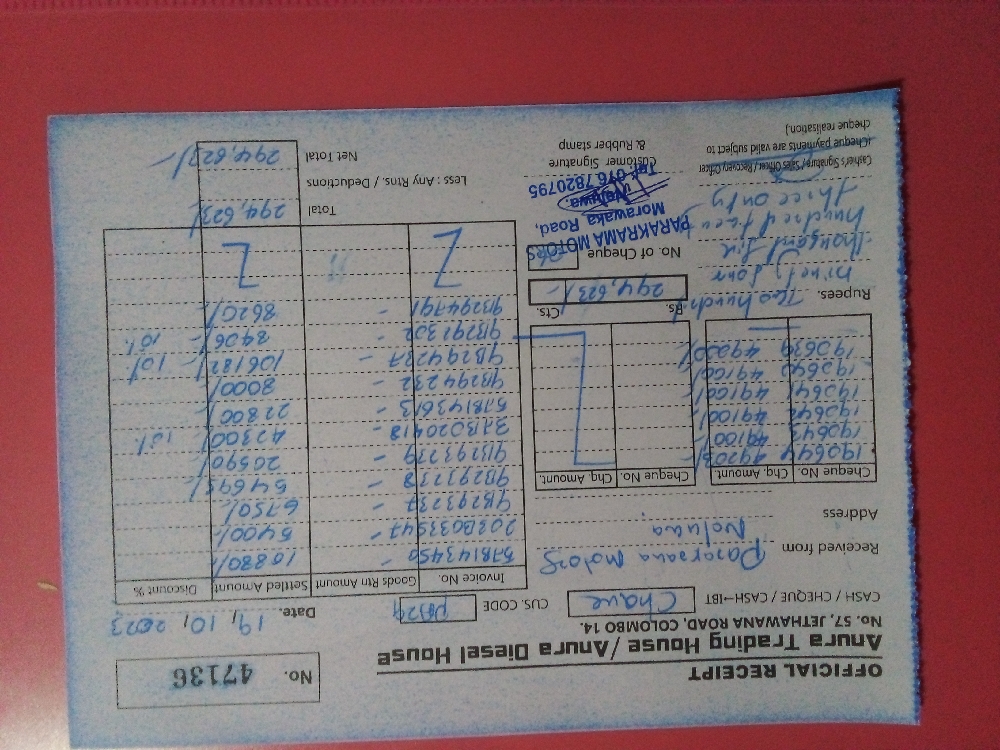 OFFICIAL RECEIPT
Anura Trading House / Anura Diesel House
No. 57, JETHAWANA ROAD, COLOMBO 14.
No. 47136
CASH / CHEQUE / CASH→IBT Chque
CUS. CODE
Date. 19, 10, 2023
Received from Pararama motors
Address Neluwa
Cheque No. Chq. Amount. Cheque No. Chq. Amount
190644 49203/-
190643 49100/-
190642 49100/-
190641 49100/-
190640 49100/-
190639 49020/-
Rupees. Two hundred
ninety four
thousand six
hundred twenty
three only
Rs. 294,623/- Cts.
No. of Cheque 06
Invoice No. Goods Rtn Amount Settled Amount Discount %
57B143450 - 10880/-
203B033547 - 5400/-
9B293237 - 6750/-
9B293238 - 54695/-
9B293239 - 20590/-
37B020418 - 42300/- 10%
57B143613 - 22800/-
9B294232 - 8000/-
9B294237 - 106182/- 10%
9B291302 - 8406/- 10%
9B294791 - 8620/-
Total 294,623/-
Less : Any Rtns. / Deductions
Net Total 294,623/-
PARAKRAMA MOTORS
Morawaka Road,
Neluwa.
Tel: 076 7820795
Customer Signature
& Rubber stamp
Casher's Signature / Sales Officer / Recovery Officer
(Cheque payments are valid subject to
cheque realisation.)